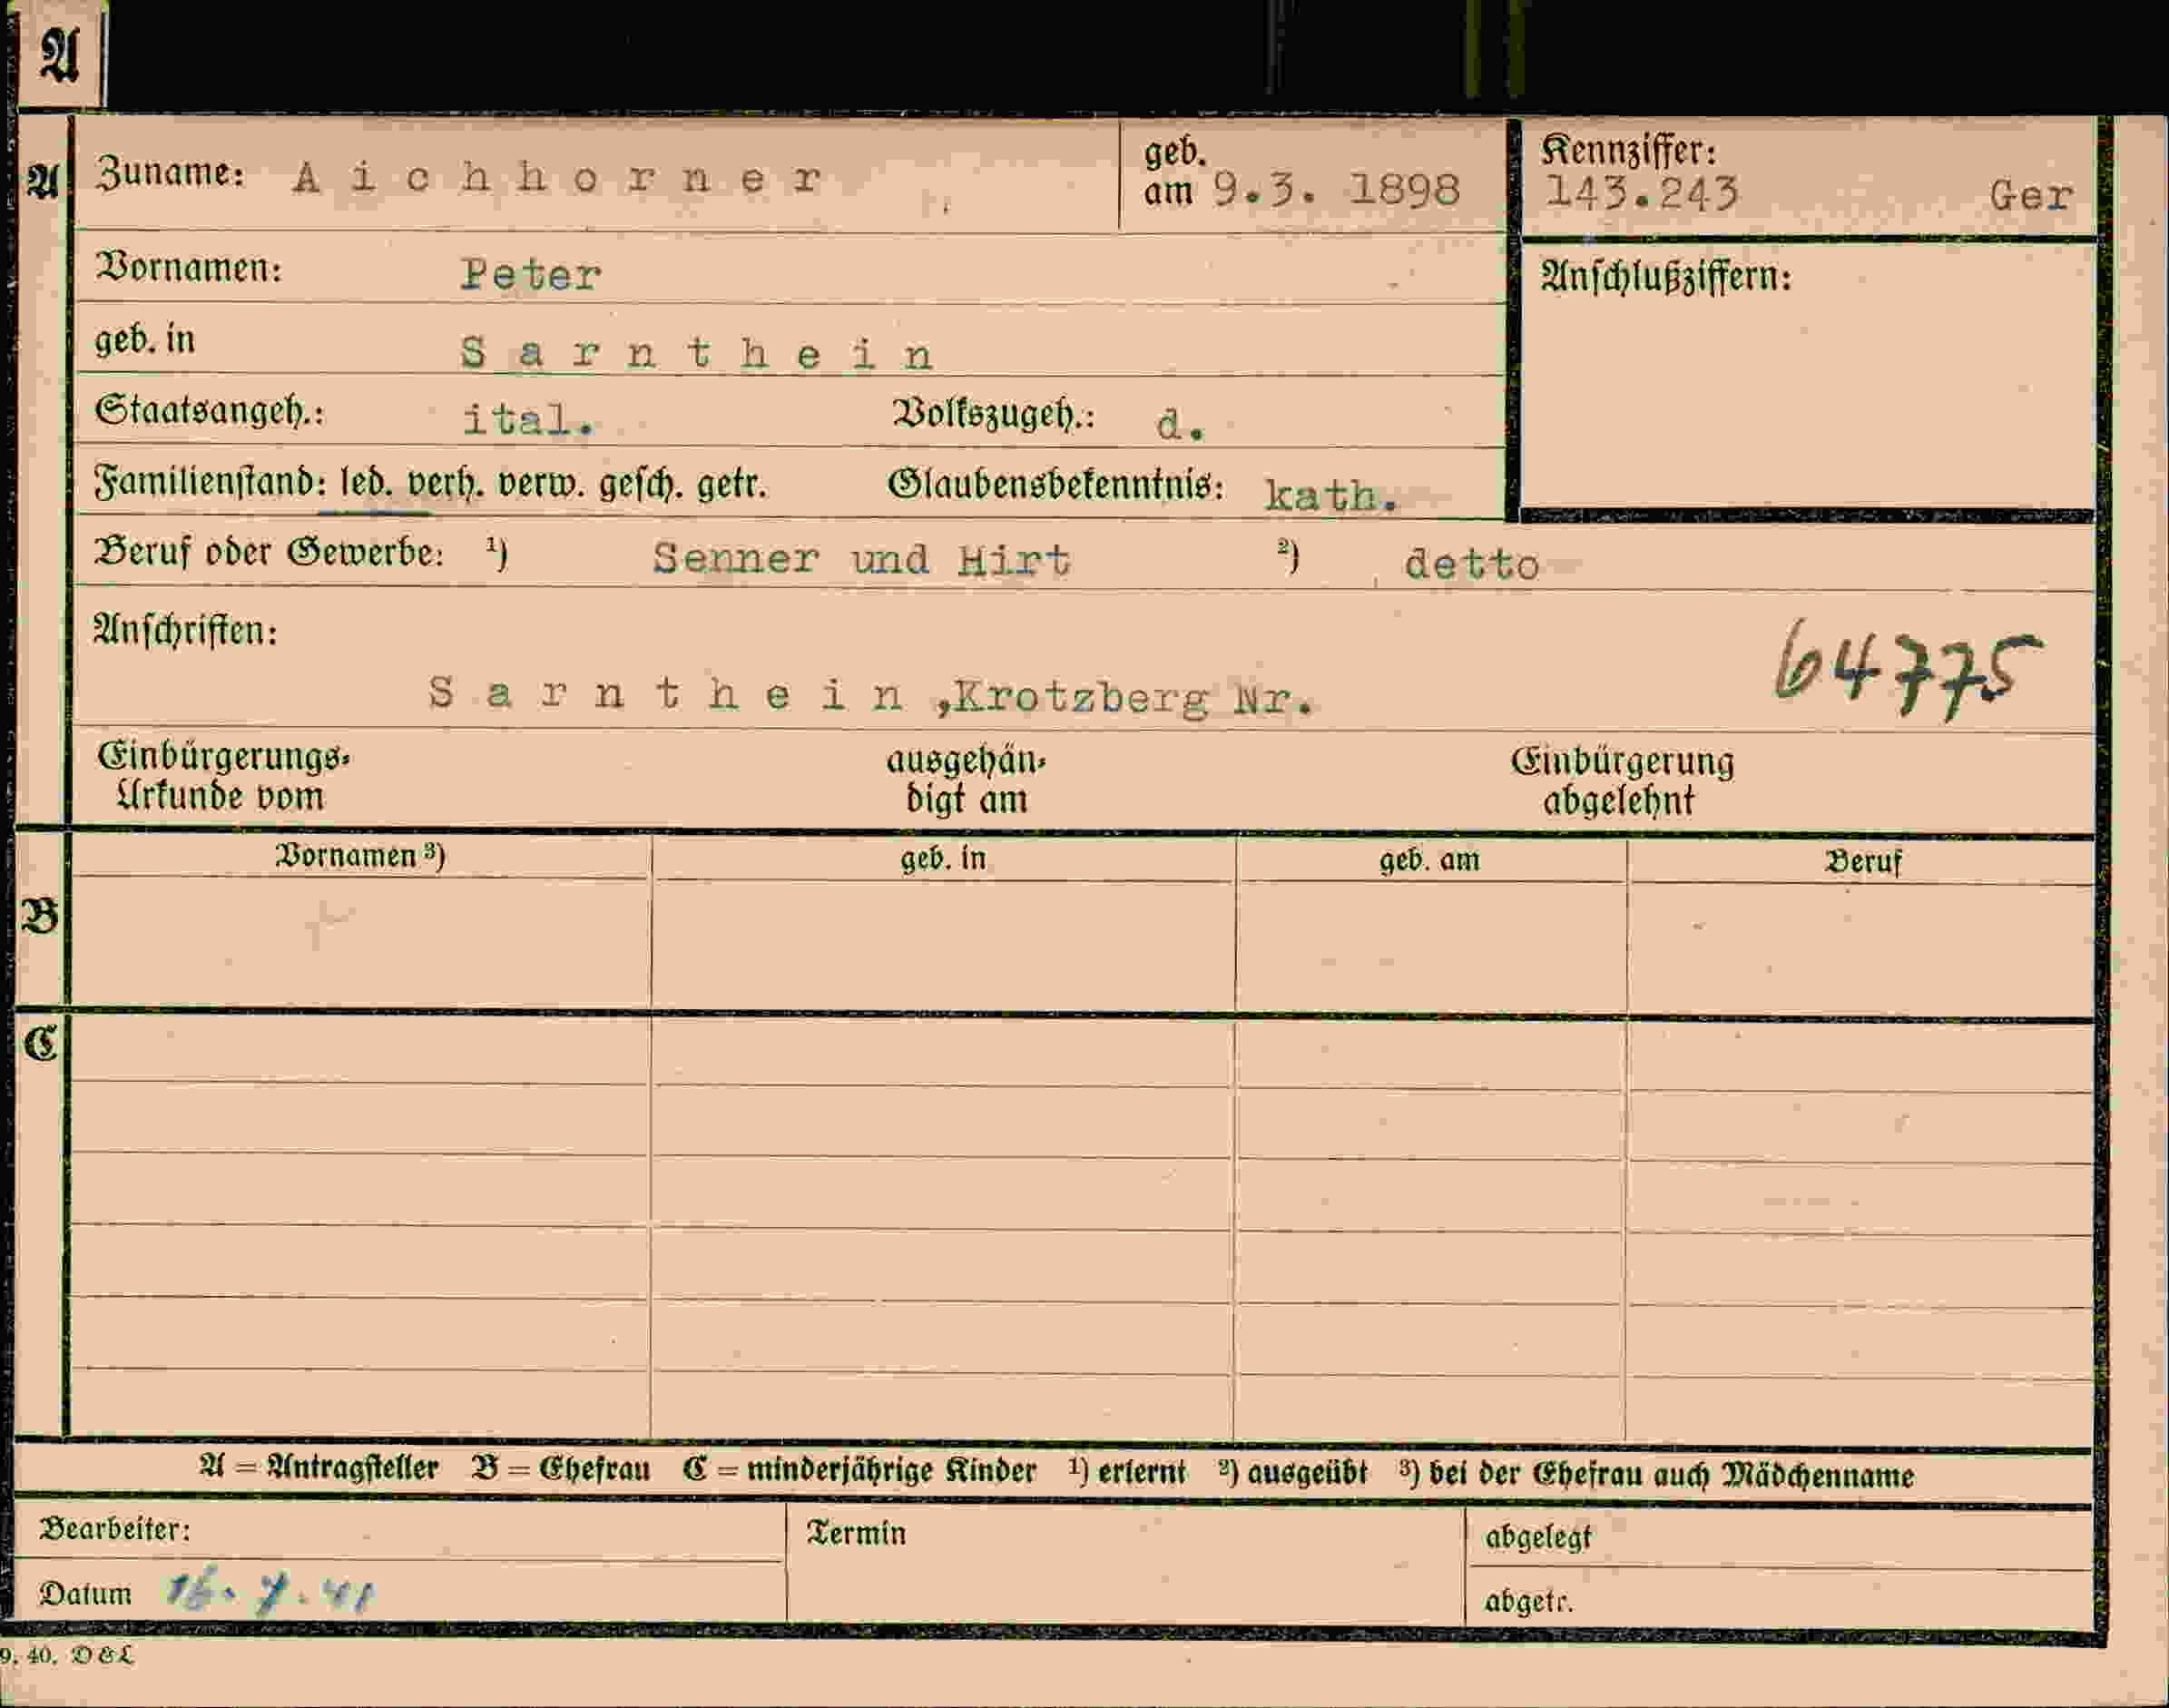 A
A Zuname: Aichhorner geb. am 9.3. 1898 Kennziffer: 143.243 Ger
Vornamen: Peter Anschlußziffern:
geb. in Sarnthein
Staatsangeh.: ital. Volkszugeh.: d.
Familienstand: led. verh. verw. gesch. getr. Glaubensbekenntnis: kath.
Beruf oder Gewerbe: ¹) Senner und Hirt ²) detto
Anschriften: 64775
Sarnthein ,Krotzberg Nr.
Einbürgerungs- ausgehän- Einbürgerung
Urkunde vom digt am abgelehnt
Vornamen ³) geb. in geb. am Beruf
B
C
A = Antragsteller B = Ehefrau C = minderjährige Kinder ¹) erlernt ²) ausgeübt ³) bei der Ehefrau auch Mädchenname
Bearbeiter: Termin abgelegt
Datum 16.7.41 abgetr.
9. 40. D & L